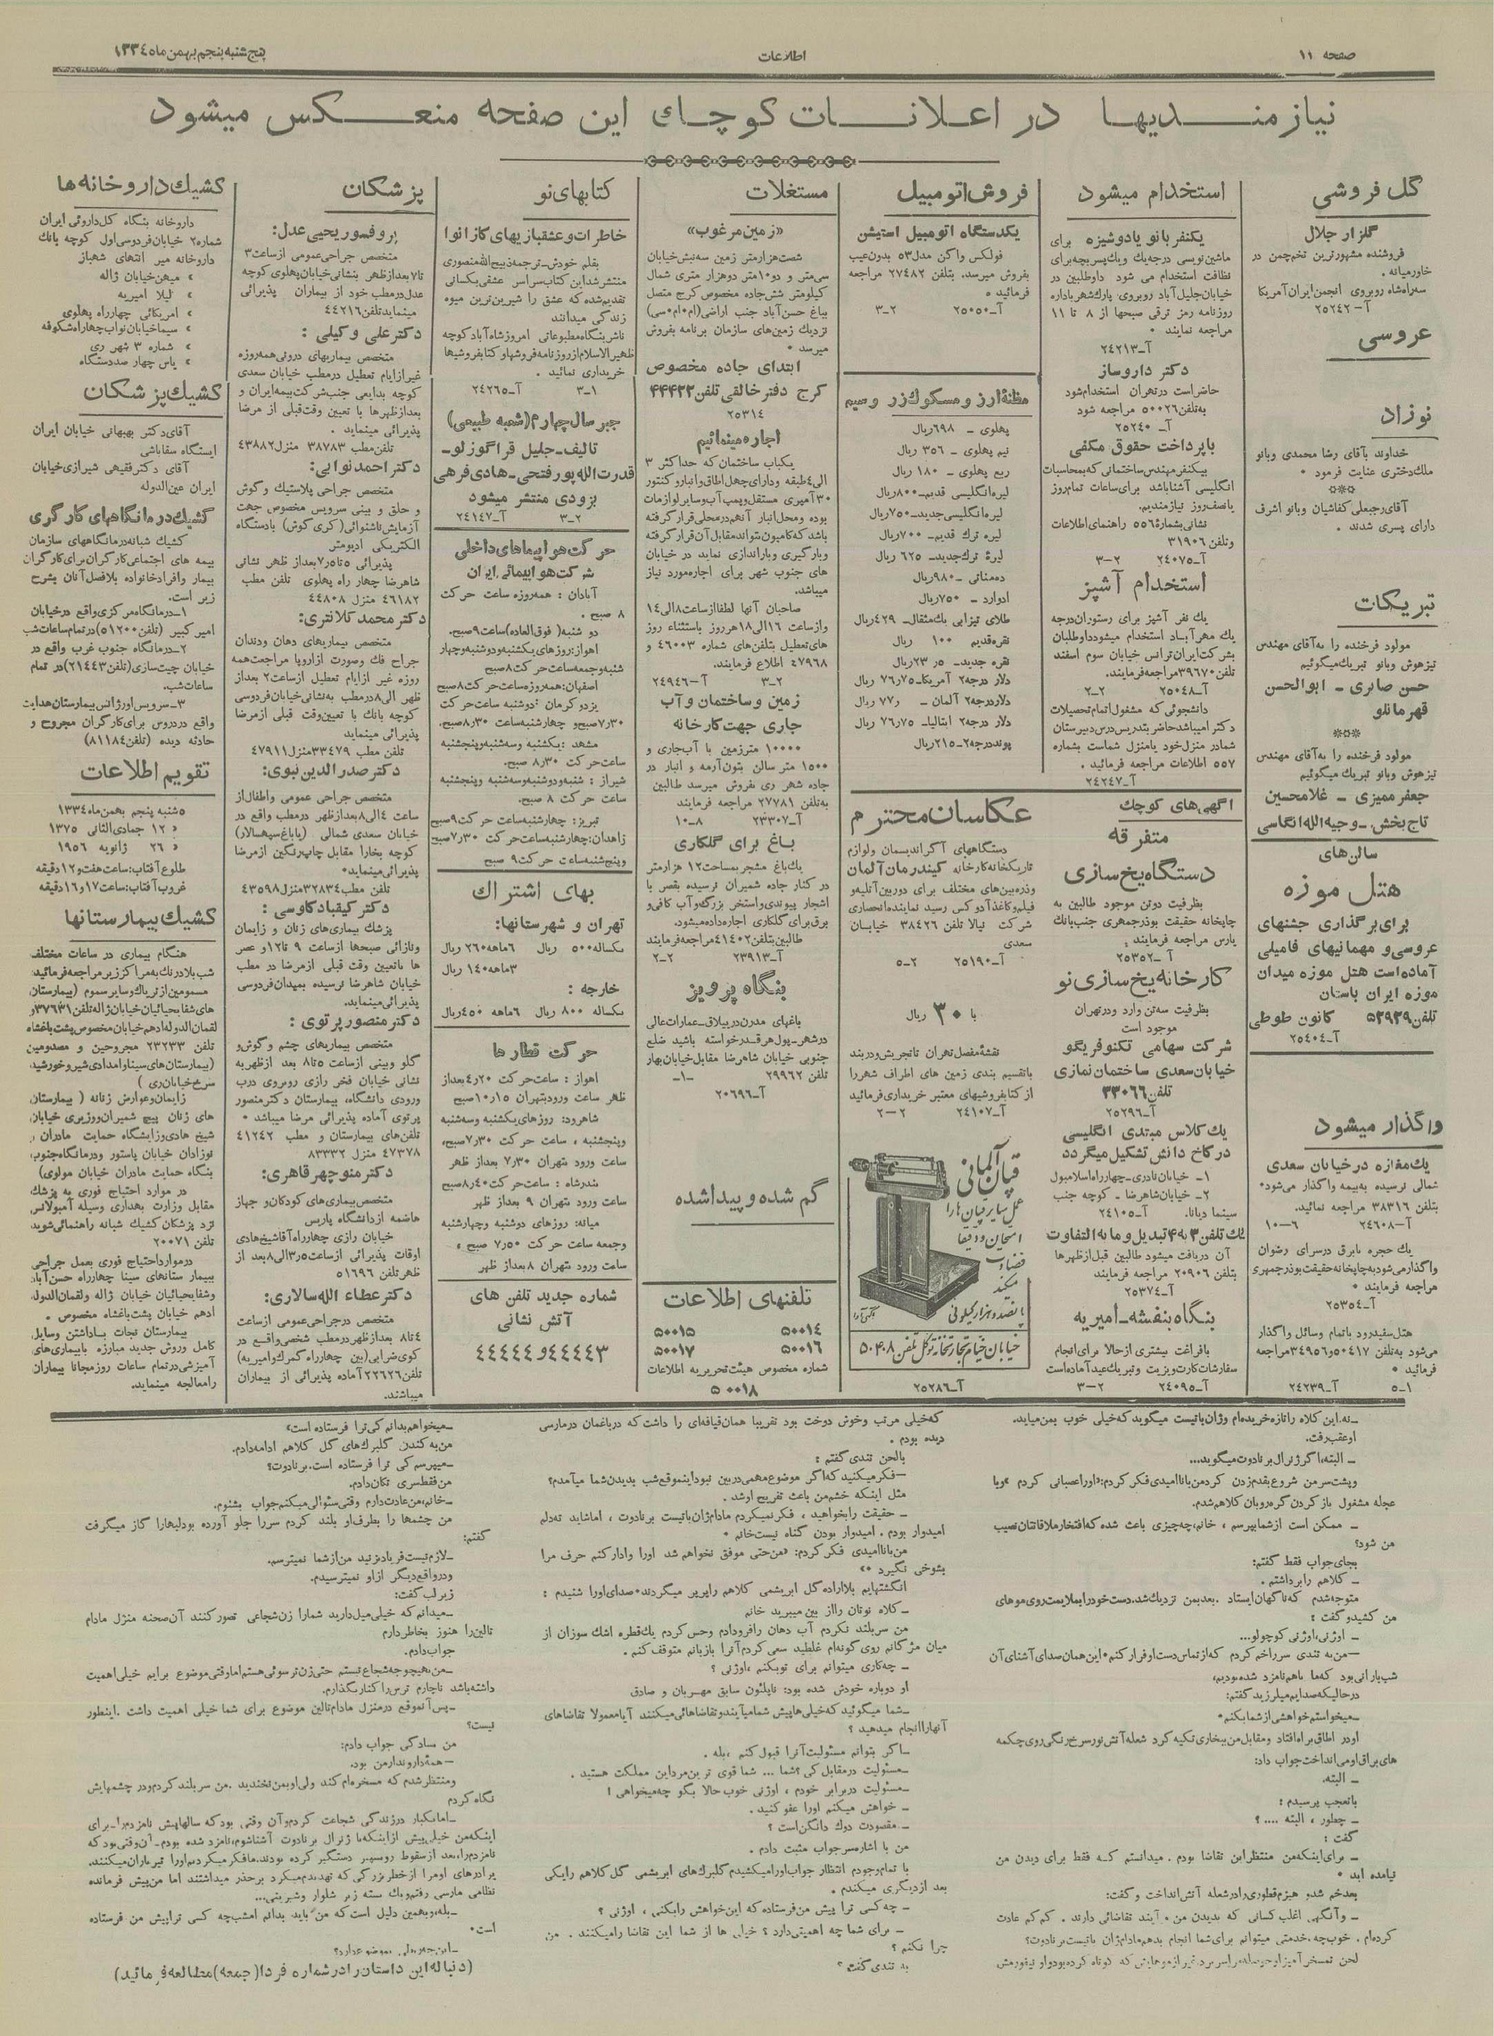 صفحه ۱۱
اطلاعات
پنج‌شنبه پنجم بهمن ماه ۱۳۳٤
نیازمندیها در اعلانات کوچك این صفحه منعکس میشود
گل فروشی
گلزار جلال
فروشنده مشهورترین تخم‌چمن در
خاورمیانه .
سه‌راه‌شاه روبروی انجمن ایران آمریکا
آ- ۲۵۲٤۲
عروسی
نوزاد
خداوند بآقای رضا محمدی وبانو
ملك‌دختری عنایت فرمود *
آقای‌رجبعلی کفاشیان وبانو اشرف
دارای پسری شدند .
تبریکات
مولود فرخنده را به‌آقای مهندس
تیزهوش وبانو تبریك میگوئیم
حسن صابری - ابوالحسن
قهرمانلو
مولود فرخنده را به‌آقای مهندس
تیزهوش وبانو تبریك میگوئیم
جعفر ممیزی - غلامحسین
تاج‌بخش- وجیه‌الله انگاسی
سالن‌های
هتل موزه
برای برگذاری جشنهای
عروسی و مهمانیهای فامیلی
آماده است هتل موزه میدان
موزه ایران باستان
تلفن ۵۲۹۲۹ کانون طوطی
آ- ۲۵٤۰٤
واگذار میشود
یك مغازه در خیابان سعدی
شمالی نرسیده به‌بیمه واگذار می‌شود*
بتلفن ۳۸۳۱۶ مراجعه نمائید.
آ- ۲٤۶۰۸ ۶-۱۰
یك حجره بابرق درسرای رضوان
واگذار می‌شود به‌چاپخانه حقیقت بوذرجمهری
مراجعه فرمایند *
آ- ۲۵۳۵٤
هتل سفیدرود باتمام وسائل واگذار
می‌شود به‌تلفن ۵۰٤۱۷ و ۳٤۹۵۶ مراجعه
فرمائید *
۱-۵ آ- ۲٤۲۳۹
استخدام میشود
یکنفر بانو یادوشیزه برای
ماشین‌نویسی درجه‌یك ویك پسر بچه برای
نظافت استخدام می شود داوطلبین در
خیابان جلیل‌آباد روبروی پارك‌شهر باداره
روزنامه رمز ترقی صبحها از ۸ تا ۱۱
مراجعه نمایند *
آ- ۲٤۲۱۳
دکتر داروساز
حاضر است درتهران استخدام‌شود
به‌تلفن ۵۰۰۲۶ مراجعه شود
آ- ۲۵۲٤۰
باپرداخت حقوق مکفی
بیکنفر مهندس ساختمانی که بمحاسبات
انگلیسی آشنا باشد برای ساعات تمام‌روز
یانصف روز نیازمندیم.
نشانی بشمارهٔ ۵۵۶ راهنمای اطلاعات
وتلفن ۳۱۹۰۶
آ- ۲٤۰۷۵ ۲-۳
استخدام آشپز
یك نفر آشپز برای رستوران درجه
یك مهرآباد استخدام میشود داوطلبان
بشرکت ایران ترانس خیابان سوم اسفند
تلفن ۳۹۶۷۰ مراجعه‌فرمایند.
آ- ۲۵۰٤۸ ۲-۲
دانشجوئی که مشغول اتمام تحصیلات
دکترا میباشد حاضر بتدریس درس دبیرستان
شمادر منزل خود یا منزل شماست بشماره
۵۵۷ اطلاعات مراجعه فرمائید .
آ- ۲٤۲٤۷
آگهی‌های کوچك
متفرقه
دستگاه یخ سازی
بظرفیت دوتن موجود طالبین به
چاپخانه حقیقت بوذرجمهری جنب‌بانك
پارس مراجعه فرمایند :
آ- ۲۵۳۵۲
کارخانه یخ سازی نو
بظرفیت سه‌تن وارد ودرتهران
موجود است
شرکت سهامی تکنوفریگو
خیابان سعدی ساختمان نمازی
تلفن ۳۳۰۶۶
آ- ۲۵۲۹۶
یك کلاس مبتدی انگلیسی
در کاخ دانش تشکیل میگردد
۱- خیابان نادری- چهارراه اسلامبول
۲- خیابان شاهرضا - کوچه جنب
سینما دیانا. آ- ۲٤۱۰۵
یك تلفن ۳ به ٤ تبدیل و مابه التفاوت
آن دریافت میشود طالبین قبل ازظهرها
بتلفن ۲۰۹۰۶ مراجعه فرمایند
آ- ۲۵۳۷٤
بنگاه بنفشه- امیریه
بافراغت بیشتری ازحالا برای انجام
سفارشات کارت ویزیت وتبریك عید آماده است
آ- ۲٤۰۹۵ ۲-۳
فروش اتومبیل
یکدستگاه اتومبیل استیشن
فولکس واگن مدل ۵۳ بدون‌عیب
بفروش میرسد. بتلفن ۲۷٤۸۲ مراجعه
فرمائید *
آ- ۲۵۰۵۰ ۲-۳
مظنهٔ ارز و مسکوك زر وسیم
پهلوی - ۶۹۸ ریال
نیم پهلوی - ۳۵۶ ریال
ربع پهلوی - ۱۸۰ ریال
لیره انگلیسی قدیم- ۸۰۰ ریال
لیره انگلیسی جدید- ۷۵۰ ریال
لیره ترك قدیم- ۷۰۰ ریال
لیرهٔ ترك جدید- ۶۲۵ ریال
ده‌مناتی - ۹۸۰ ریال
ادوارد - ۷۵۰ ریال
طلای تیزابی یك‌مثقال- ٤۲۹ ریال
نقره قدیم ۱۰۰ ریال
نقره جدید- ۲۳٫۵ ریال
دلار درجه۲ آمریکا- ۷۶٫۷۵ ریال
دلار درجه۲ آلمان - ۷۷٫ ریال
دلار درجه۲ ایتالیا- ۷۶٫۷۵ ریال
پوند درجه۲- ۲۱۵ ریال
عکاسان محترم
دستگاههای آگراندیسمان ولوازم
تاریکخانه کارخانه کیندرمان آلمان
وذره‌بین‌های مختلف برای دوربین آتلیه‌و
فیلم وکاغذ آدوکس رسید نماینده انحصاری
شرکت نیالا تلفن ۳۸٤۲۶ خیابان
سعدی
آ- ۲۵۱۹۰ ۲-۵
با ۳۰ ریال
نقشهٔ مفصل تهران تاتجریش ودربند
باتقسیم بندی زمین های اطراف شهر را
از کتابفروشیهای معتبر خریداری فرمائید
آ- ۲٤۱۰۷ ۲-۲
قپان آلمانی
عمل سایر قپان‌ها را
امتحان و دقیقا
قضاوت
میکند
پانصد و هزار کیلوئی
خیابان خیام تجارتخانه توکل تلفن ۵۰٤۰۸
آ- ۲۵۲۸۶
مستغلات
«زمین مرغوب»
شصت‌هزار متر زمین سه‌نبش خیابان
سی‌متری و دو ۱۰ متر دوهزار متری شمال
کیلومتر شش‌جاده مخصوص کرج متصل
بباغ حسن‌آباد جنب اراضی (ام.ام.سی)
نزدیك زمین‌های سازمان برنامه بفروش
میرسد *
ابتدای جاده مخصوص
کرج دفتر خالقی تلفن ٤٤٤۲۲
۲۵۳۱٤
اجاره مینمائیم
یکباب ساختمان که حداکثر ۳
الی ٤ طبقه ودارای چهل‌اطاق وانبار وکنتور
۳۰ آمپری مستقل وپمپ آب وسایر لوازمات
بوده ومحل انبار آنهم درمحلی قرار گرفته
باشد که کامیون بتواند مقابل آن قرار گرفته
وبارگیری وباراندازی نماید در خیابان
های جنوب شهر برای اجاره‌مورد نیاز
میباشد.
صاحبان آنها لطفا از ساعت ۸ الی ۱٤
وازساعت ۱۶ الی ۱۸ هر روز باستثناء روز
های تعطیل بتلفن‌های شماره ٤۶۰۰۳ و
٤۷۹۶۸ اطلاع فرمایند.
۲-۳ آ- ۲٤۹٤۶
زمین و ساختمان و آب
جاری جهت کارخانه
۱۰۰۰۰ متر زمین با آب‌جاری و
۱۵۰۰ متر سالن بتون‌آرمه و انبار در
جاده شهر ری بفروش میرسد طالبین
به‌تلفن ۲۷۷۸۱ مراجعه فرمایند
آ- ۲۳۳۰۷ ۸-۱۰
باغ برای گلکاری
یك‌باغ مشجر بمساحت ۱۲ هزارمتر
در کنار جاده شمیران نرسیده بقصر با
اشجار پیوندی واستخر بزرگ وآب کافی و
برق برای گلکاری اجاره داده میشود.
طالبین بتلفن ٤۱٤۰۲ مراجعه فرمایند
آ- ۲۳۹۱۳ ۲-۲
بنگاه پرویز
باغهای مدرن در ییلاق- عمارات عالی
درشهر- پول هرقدر خواسته باشید ضلع
جنوبی خیابان شاهرضا مقابل خیابان بهار
تلفن ۲۹۹۶۲ -۱-
آ- ۲۰۶۹۶
گم شده و پیدا شده
تلفنهای اطلاعات
۵۰۰۱٤ ۵۰۰۱۵
۵۰۰۱۶ ۵۰۰۱۷
شماره مخصوص هیئت تحریریه اطلاعات
۵۰۰۱۸
کتابهای نو
خاطرات و عشقبازیهای کازانوا
بقلم خودش- ترجمه ذبیح‌الله منصوری
منتشر شد این کتاب سراسر عشقی بکسانی
تقدیم شده که عشق را شیرین‌ترین میوه
زندگی میدانند
ناشر بنگاه مطبوعاتی امروز شاه‌آباد کوچه
ظهیرالاسلام از روزنامه فروشها و کتابفروشیها
خریداری نمائید .
۱-۳ آ- ۲٤۲۶۵
جبر سال چهارم (شعبه طبیعی)
تالیف- جلیل قراگوزلو-
قدرت‌الله پورفتحی- هادی فرهی
بزودی منتشر میشود
۲-۳ آ- ۲٤۱٤۷
حرکت هواپیماهای داخلی
شرکت هواپیمائی ایران
آبادان : همه‌روزه ساعت حرکت
۸ صبح .
دو شنبه (فوق‌العاده) ساعت ۹ صبح.
اهواز: روزهای یکشنبه و سه‌شنبه و چهار
شنبه و جمعه ساعت حرکت ۸ صبح
اصفهان: همه‌روزه ساعت حرکت ۸ صبح
یزد وکرمان : دوشنبه ساعت حرکت
۷٫۳۰ صبح و چهارشنبه ساعت ۸٫۳۰ صبح.
مشهد : یکشنبه وسه‌شنبه وپنجشنبه
ساعت حرکت ۸٫۳۰ صبح.
شیراز : شنبه ودوشنبه وسه‌شنبه وپنجشنبه
ساعت حرکت ۸ صبح.
تبریز: چهارشنبه ساعت حرکت ۹ صبح
زاهدان: چهارشنبه ساعت حرکت ۷٫۳۰ صبح
وپنجشنبه ساعت حرکت ۹ صبح
بهای اشتراك
تهران و شهرستانها:
یکساله ۵۰۰ ریال ۶ ماهه ۲۶۰ ریال
۳ ماهه ۱٤۰ ریال
خارجه :
یکساله ۸۰۰ ریال ۶ ماهه ٤۵۰ ریال
حرکت قطارها
اهواز : ساعت حرکت ٤٫۲۰ بعداز
ظهر ساعت ورود بتهران ۱۰٫۱۵ صبح
شاهرود: روزهای یکشنبه وسه‌شنبه
وپنجشنبه ، ساعت حرکت ۷٫۳۰ صبح،
ساعت ورود بتهران ۷٫۳۰ بعداز ظهر
بندرشاه : ساعت حرکت ۸٫٤۰ صبح
ساعت ورود بتهران ۹ بعداز ظهر
میانه: روزهای دوشنبه وچهارشنبه
وجمعه ساعت حرکت ۷٫۵۰ صبح ،
ساعت ورود بتهران ۸ بعداز ظهر
شماره جدید تلفن های
آتش نشانی
٤٤٤٤۳ و ٤٤٤٤٤
پزشکان
پروفسور یحیی عدل:
متخصص جراحی عمومی ازساعت ۳
تا ۷ بعدازظهر بنشانی خیابان پهلوی کوچه
عدل درمطب خود از بیماران پذیرائی
مینماید تلفن ٤٤۲۱۶
دکتر علی وکیلی :
متخصص بیماریهای درونی همه‌روزه
غیر از ایام تعطیل درمطب خیابان سعدی
کوچه بدایعی جنب شرکت بیمه ایران و
بعدازظهرها با تعیین وقت قبلی از مرضا
پذیرائی مینماید .
تلفن مطب ۳۸۷۸۳ منزل ٤۳۸۸۲
دکتر احمد نوابی:
متخصص جراحی پلاستیك و گوش
و حلق و بینی سرویس مخصوص جهت
آزمایش ناشنوائی (کری گوش) بادستگاه
الکتریکی ادیومتر
پذیرائی ۵ تا ۷٫۵ بعداز ظهر نشانی
شاهرضا چهار راه پهلوی تلفن مطب
٤۶۱۸۲ منزل ٤٤۸۰۸
دکتر محمد کلانتری:
متخصص بیماریهای دهان ودندان
جراح فك وصورت ازاروپا مراجعت همه
روزه غیر ازایام تعطیل ازساعت ۲ بعداز
ظهر الی ۸ درمطب به‌نشانی خیابان فردوسی
کوچه بانك با تعیین وقت قبلی ازمرضا
پذیرائی مینماید
تلفن مطب ۳۳٤۷۹ منزل ٤۷۹۱۱
دکتر صدرالدین نبوی:
متخصص جراحی عمومی واطفال از
ساعت ٤ الی ۸ بعدازظهر درمطب واقع در
خیابان سعدی شمالی (باباغ سپهسالار)
کوچه بخارا مقابل چاپ رنگین ازمرضا
پذیرائی مینماید*
تلفن مطب ۳۲۸۳٤ منزل ٤۳۵۹۸
دکتر کیقباد کاوسی :
پزشك بیماری‌های زنان و زایمان
ونازائی صبحها ازساعت ۹ تا ۱۲ و عصر
ها باتعیین وقت قبلی ازمرضا در مطب
خیابان شاهرضا نرسیده بمیدان فردوسی
پذیرائی مینماید.
دکتر منصور پرتوی :
متخصص بیماریهای چشم وگوش‌و
گلو وبینی ازساعت ۵ تا ۸ بعد ازظهر به
نشانی خیابان فخر رازی روبروی درب
ورودی دانشگاه، بیمارستان دکتر منصور
پرتوی آماده پذیرائی مرضا میباشد *
تلفن‌های بیمارستان و مطب ٤۱۲٤۲
٤۷۳۷۸ منزل ۸۳۳۳۲
دکتر منوچهر قاهری:
متخصص بیماری‌های کودکان و جهاز
هاضمه ازدانشگاه پاریس
خیابان رازی چهارراه آقاشیخ‌هادی
اوقات پذیرائی ازساعت ۳٫۵ الی ۸ بعد از
ظهر تلفن ۵۱۶۹۶
دکتر عطاءالله سالاری:
متخصص درجراحی عمومی ازساعت
٤ تا ۸ بعدازظهر درمطب شخصی واقع در
کوی شرابی (بین چهارراه گمرك وامیریه)
تلفن ۲۲۶۲۶ آماده پذیرائی از بیماران
میباشند.
کشیك داروخانه‌ها
داروخانه بنگاه کل‌داروئی ایران
شماره ۲ خیابان فردوسی اول کوچه بانك
داروخانه میر انتهای شهباز
» میهن خیابان ژاله
» لیلا امیریه
» امریکائی چهارراه پهلوی
» سینا خیابان نواب چهارراه شکوفه
» شماره ۳ شهر ری
» یاس چهار صد دستگاه
کشیك پزشکان
آقای دکتر بهبهانی خیابان ایران
ایستگاه سقاباشی
آقای دکتر فقیهی شیرازی خیابان
ایران عین‌الدوله
کشیك درمانگاههای کارگری
کشیك شبانه درمانگاههای سازمان
بیمه های اجتماعی کارگران برای کارگران
بیمار وافراد خانواده بلافصل آنان بشرح
زیر است.
۱- درمانگاه مرکزی واقع درخیابان
امیر کبیر (تلفن ۵۱۲۰۰) در تمام ساعات شب
۲- درمانگاه جنوب غرب واقع در
خیابان چیت‌سازی (تلفن ۲۱٤٤۳) در تمام
ساعات شب.
۳- سرویس اورژانس بیمارستان هدایت
واقع دردروس برای کارگران مجروح و
حادثه دیده (تلفن ۸۱۱۸٤)
تقویم اطلاعات
۵ شنبه پنجم بهمن ماه ۱۳۳٤
» ۱۲ جمادی‌الثانی ۱۳۷۵
» ۲۶ ژانویه ۱۹۵۶
طلوع آفتاب: ساعت هفت و ۱۲ دقیقه
غروب آفتاب: ساعت ۱۷ و ۱۶ دقیقه
کشیك بیمارستانها
هنگام بیماری در ساعات مختلف
شب بلادرنگ به مراکز زیر مراجعه فرمائید:
مسمومین از تریاك و سایر سموم (بیمارستان
های شفایحیائیان خیابان ژاله تلفن ۳۷۶۳۱ و
لقمان‌الدوله ادهم خیابان مخصوص پشت باغشاه
تلفن ۲۳۲۳۳ مجروحین و مصدومین
(بیمارستان‌های سینا و امدادی شیروخورشید
سرخ خیابان ری )
زایمان وعوارض زنانه (بیمارستان
های زنان پیچ شمیران ووزیری خیابان
شیخ هادی وزایشگاه حمایت مادران و
نوزادان خیابان پاستور ودرمانگاه جنوب
بنگاه حمایت مادران خیابان مولوی)
در موارد احتیاج فوری به پزشك
مقابل وزارت بهداری وسیله آمبولانس
نزد پزشکان کشیك شبانه راهنمائی شوید
تلفن ۲۰۰۷۱
درموارد احتیاج فوری بعمل جراحی
ببیمارستانهای سینا چهارراه حسن آباد
وشفایحیائیان خیابان ژاله ولقمان‌الدوله
ادهم خیابان پشت باغشاه مخصوص .
بیمارستان نجات باداشتن وسایل
کامل وروش جدید مبارزه بابیماری‌های
آمیزشی درتمام ساعات روز مجانا بیماران
رامعالجه مینماید.
-نه، این کلاه را تازه خریده‌ام وژان باتیست میگوید که خیلی خوب بمن میاید.
او عقب رفت.
- البته، اگر ژنرال برنادوت میگوید...
وپشت سر من شروع بقدم زدن کرد من باناامیدی فکر کردم: «اورا عصبانی کردم » وبا
عجله مشغول باز کردن گره روبان کلاهم شدم.
- ممکن است ازشما بپرسم ، خانم، چه‌چیزی باعث شده که افتخار ملاقاتتان نصیب
من شود؟
بجای جواب فقط گفتم:
- کلاهم را برداشتم .
متوجه شدم که ناگهان ایستاد . بعد بمن نزدیك شد، دست خود را بملایمت روی موهای
من کشید و گفت :
- اوژنی، اوژنی کوچولو...
-من به تندی سر را خم کردم که از تماس دست او فرار کنم * این همان صدای آشنای آن
شب بارانی بود که ما باهم نامزد شده بودیم،
درحالیکه صدایم میلرزید گفتم:
-میخواستم خواهشی ازشما بکنم*
اودر اطاق براه افتاد ومقابل من ببخاری تکیه کرد شعله آتش نور سرخ رنگی روی چکمه
های براق او می‌انداخت جواب داد:
- البته.
باتعجب پرسیدم :
- چطور ، البته .... ؟
گفت :
- برای اینکه من منتظر این تقاضا بودم . میدانستم که فقط برای دیدن من
نیامده اید *
بعد خم شد و هیزم قطوری را درشعله آتش انداخت و گفت:
- وآنگهی اغلب کسانی که بدیدن من ، آیند تقاضائی دارند . کم‌کم عادت
کرده‌ام . خوب چه خدمتی میتوانم برای شما انجام بدهم مادام ژان باتیست برنادوت؟
که‌خیلی مرتب وخوش دوخت بود تقریبا همان قیافه‌ای را داشت که درباغمان درمارسی
دیده بودم .
بالحن تندی گفتم :
-فکر میکنید که اگر موضوع مهمی در بین نبود اینموقع شب بدیدن شما میآمدم؟
مثل اینکه خشم من باعث تفریح اوشد .
- حقیقت رابخواهید ، فکر نمیکردم مادام ژان باتیست برنادوت ، اما شاید ته‌دلم
امیدوار بودم . امیدوار بودن گناه نیست خانم *
من باناامیدی فکر کردم: «من حتی موفق نخواهم شد اورا وادار کنم حرف مرا
بشوخی نگیرد *»
انگشتهایم بلااراده گل ابریشمی کلاهم راپرپر میکردند * صدای اورا شنیدم :
- کلاه نوتان رااز بین میبرید خانم
من سر بلند نکردم آب دهان رافرودادم وحس کردم یك‌قطره اشك سوزان از
میان مژگانم روی گونه‌ام غلطید سعی کردم آنرا بازبانم متوقف کنم .
- چه‌کاری میتوانم برای توبکنم ،اوژنی ؟
او دوباره خودش شده بود: ناپلئون سابق مهربان و صادق
-شما میگوئید که خیلی‌ها پیش شما میآیند و تقاضاهائی میکنند آیا معمولا تقاضاهای
آنها را انجام میدهید ؟
-اگر بتوانم مسئولیت آنرا قبول کنم ، بله .
-مسئولیت درمقابل کی؟ شما ... شما قوی ترین مرد این مملکت هستید .
-مسئولیت دربرابر خودم ، اوژنی خوب حالا بگو چه‌میخواهی !
- خواهش میکنم اورا عفو کنید .
-مقصودت دوك دانگن است؟
من با اشاره سر جواب مثبت دادم .
با تمام وجودم انتظار جواب اورا میکشیدم گلبرك های ابریشمی گل کلاهم رایکی
بعد ازدیگری میکندم .
- چه‌کسی ترا پیش من فرستاده که این خواهش رابکنی ، اوژنی ؟
- برای شما چه اهمیتی دارد ؟ خیلی ها از شما این تقاضا رامیکنند . من
چرا نکنم ؟
به تندی گفت ؟
-میخواهم بدانم کی ترا فرستاده است؟
من به کندن گلبرك‌های گل کلاهم ادامه دادم.
-میپرسم کی ترا فرستاده است. برنادوت؟
من فقط سری تکان دادم.
-خانم، من عادت دارم وقتی سئوالی میکنم جواب بشنوم.
من چشمها را بطرف او بلند کردم سررا جلو آورده بود لبهارا گاز میگرفت
گفتم:
-لازم نیست فریاد بزنید من ازشما نمیترسم.
ودرواقع دیگر ازاو نمیترسیدم.
زیر لب گفت:
-میدانم که خیلی میل دارید شمارا زن شجاعی تصور کنند آن صحنه منزل مادام
تالین را هنوز بخاطر دارم
جواب دادم.
-من بهیچوجه شجاع نیستم حتی زن ترسوئی هستم اما وقتی موضوع برایم خیلی اهمیت
داشته باشد ناچارم ترس را کنار بگذارم.
-پس آنموقع درمنزل مادام تالین موضوع برای شما خیلی اهمیت داشت . اینطور
نیست؟
من بسادگی جواب دادم:
-همهٔ دار و ندار من بود.
ومنتظر شدم که مسخره‌ام کند ولی اوبمن نخندید . من سر بلند کردم ودر چشمهایش
نگاه کردم
-اما یکبار درزندگی شجاعت کردم وآن وقتی بود که سالها پیش نامزدم را- برای
اینکه من خیلی پیش ازاینکه با ژنرال برنادوت آشناشوم، نامزد شده بودم- آن وقتی بود که
نامزدم را، بعد ازسقوط روبسپیر دستگیر کرده بودند. ما فکر میکردیم اورا تیرباران میکنند.
برادرهای اومرا ازخطر بزرگی که تهدیدم میکرد برحذر میداشتند اما من پیش فرمانده
نظامی مارسی رفتم و یك بسته زیر شلوار وشیرینی...
-بله، وبهمین دلیل است که من باید بدانم امشب چه کسی ترا پیش من فرستاده
است*
(دنباله این داستان را در شماره فردا (جمعه) مطالعه فرمائید)